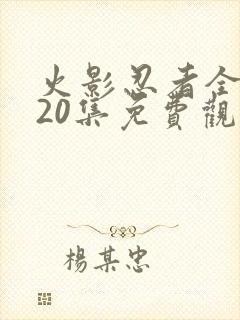 火影忍者全
20集免費觀
楊某忠